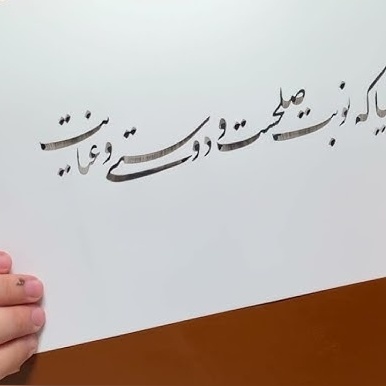 یا که نوبت صلحست و دوستی و عنایت